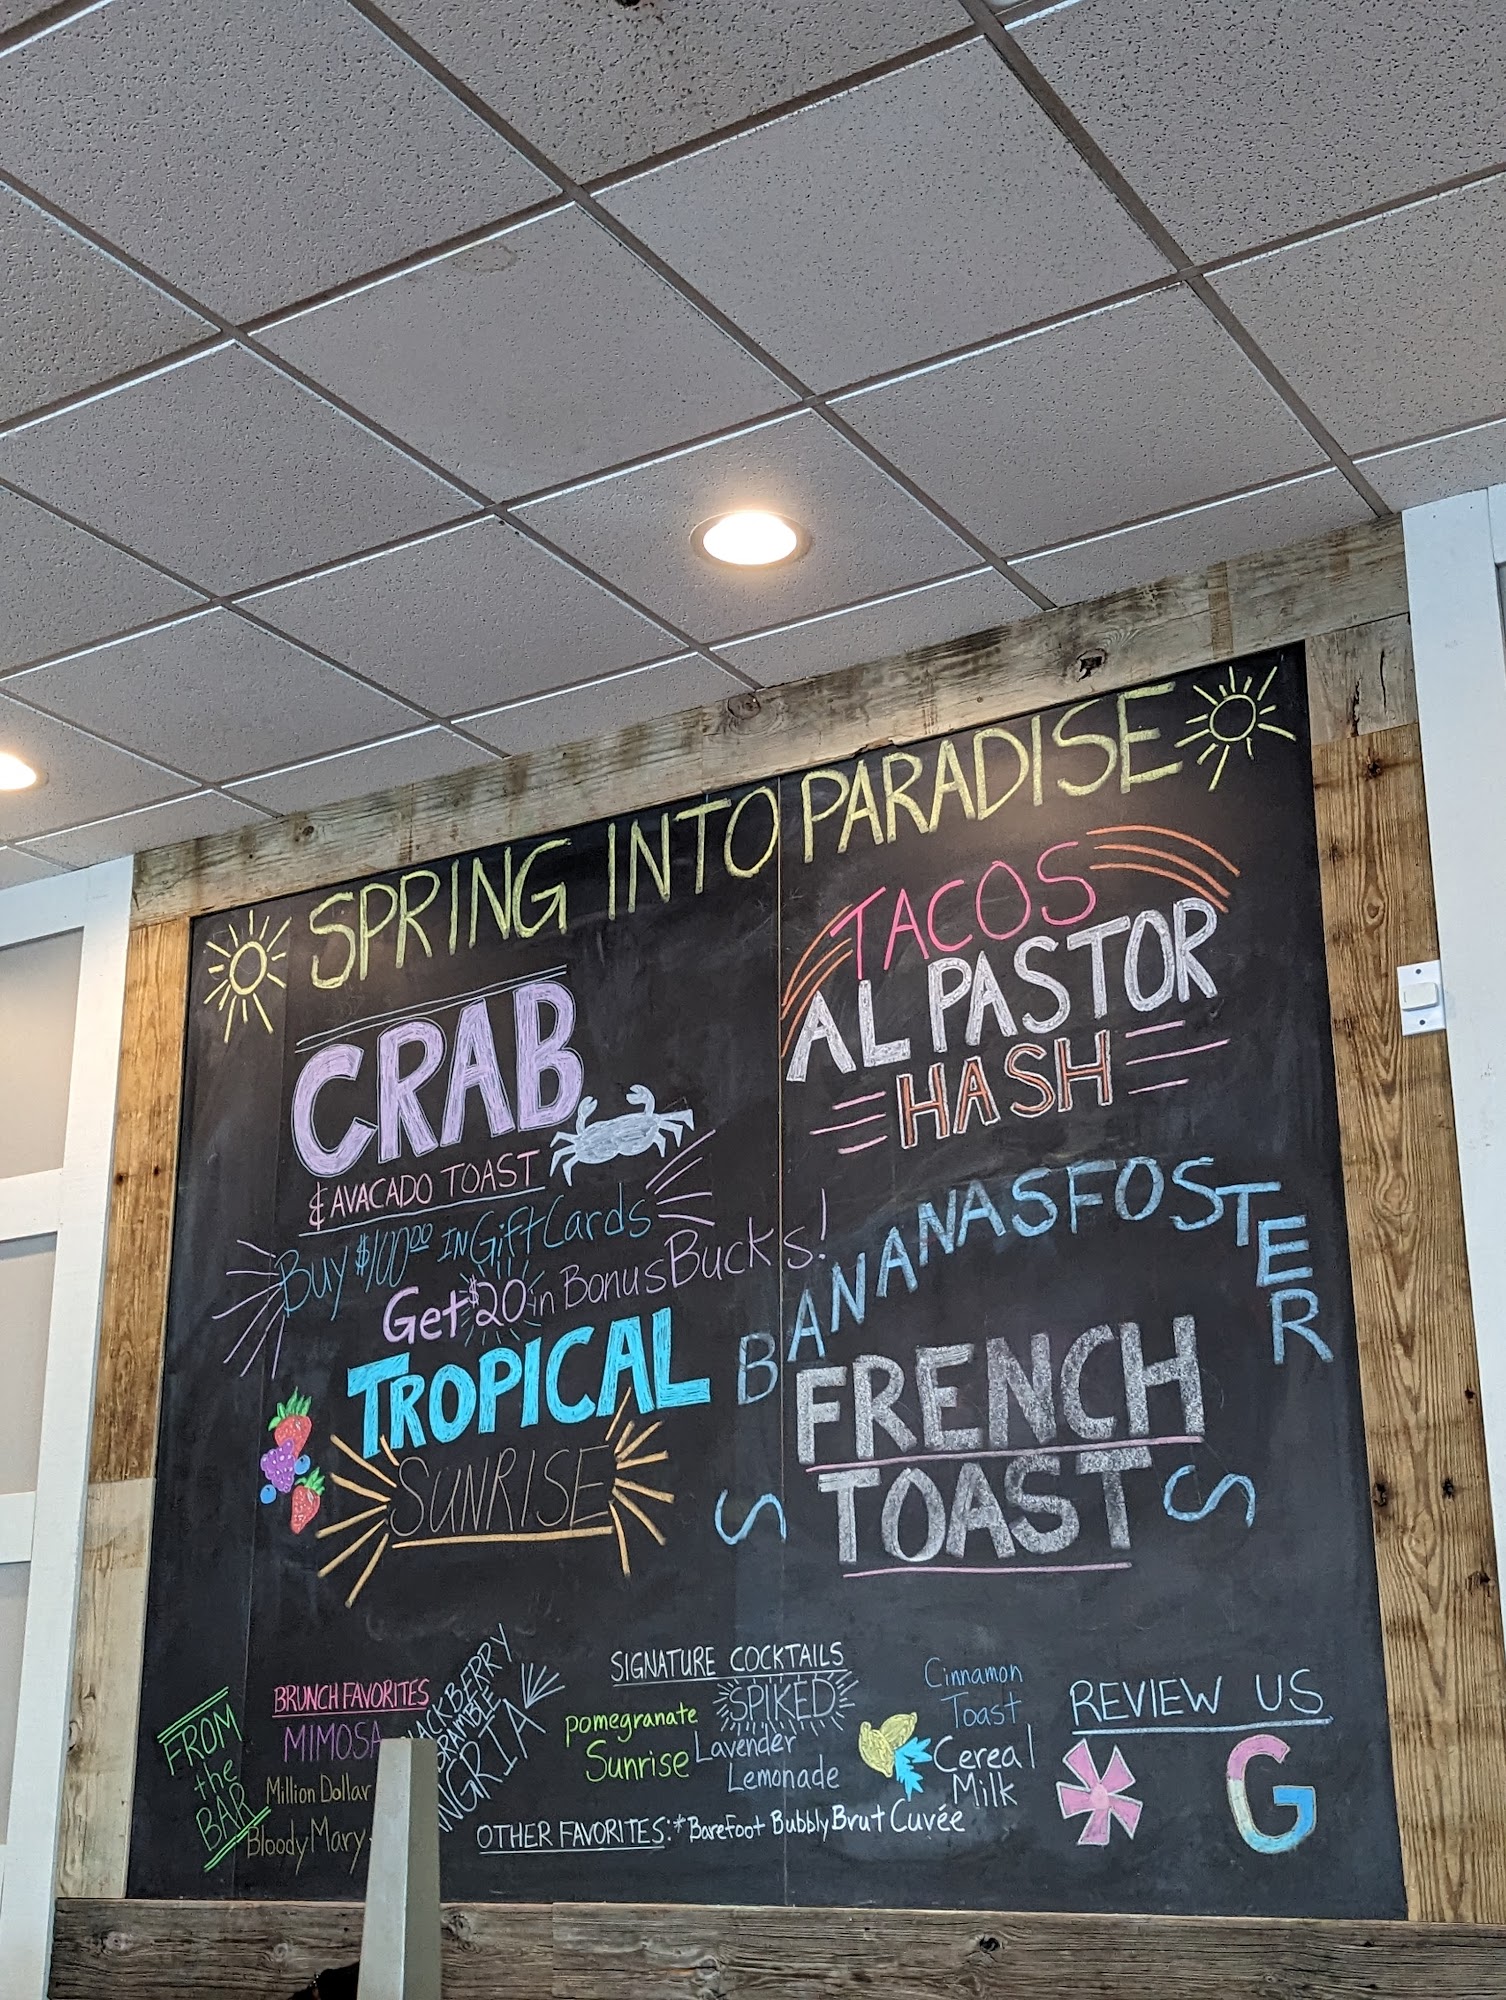 SPRING INTO PARADISE
CRAB
& AVACADO TOAST
Buy $100.00 IN Gift Cards
Get $20 in Bonus Bucks!
TROPICAL
SUNRISE
TACOS
AL PASTOR
HASH
BANANAS FOSTER
FRENCH
TOAST
FROM
the
BAR
BRUNCH FAVORITES
MIMOSA
Million Dollar
Bloody Mary
SIGNATURE COCKTAILS
pomegranate
Sunrise
SPIKED
Lavender
Lemonade
Cinnamon
Toast
Cereal
Milk
OTHER FAVORITES: *Barefoot Bubbly Brut Cuvée
REVIEW US
G